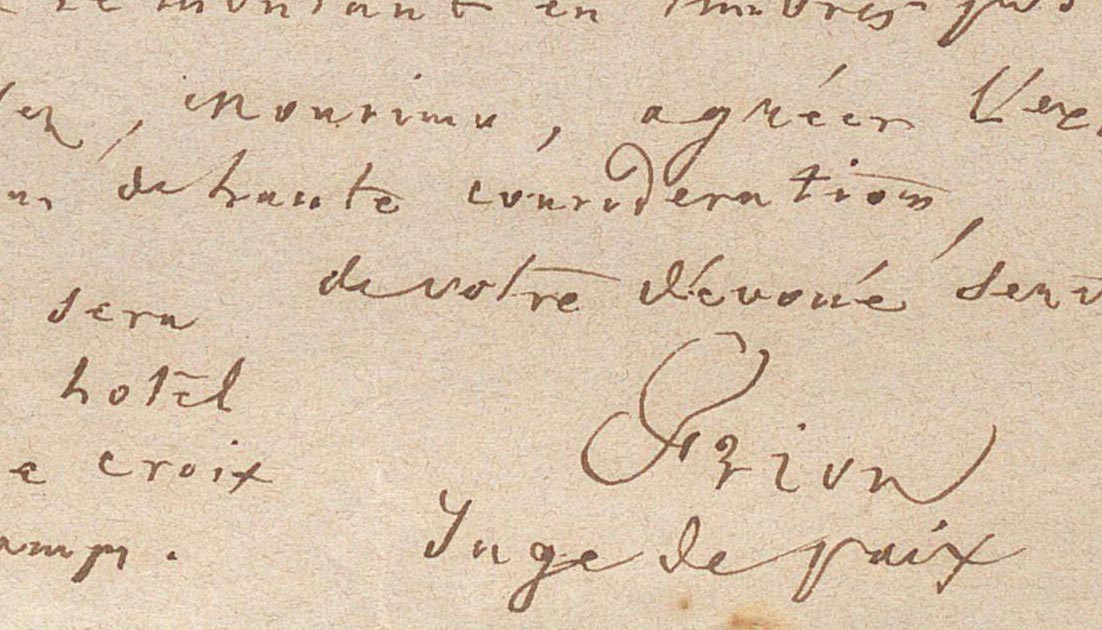 montant en timbres
, monsieur, agréer l'ex
de haute considération,
de votre dévoué serv
sera
hotel
croix
Juge de paix